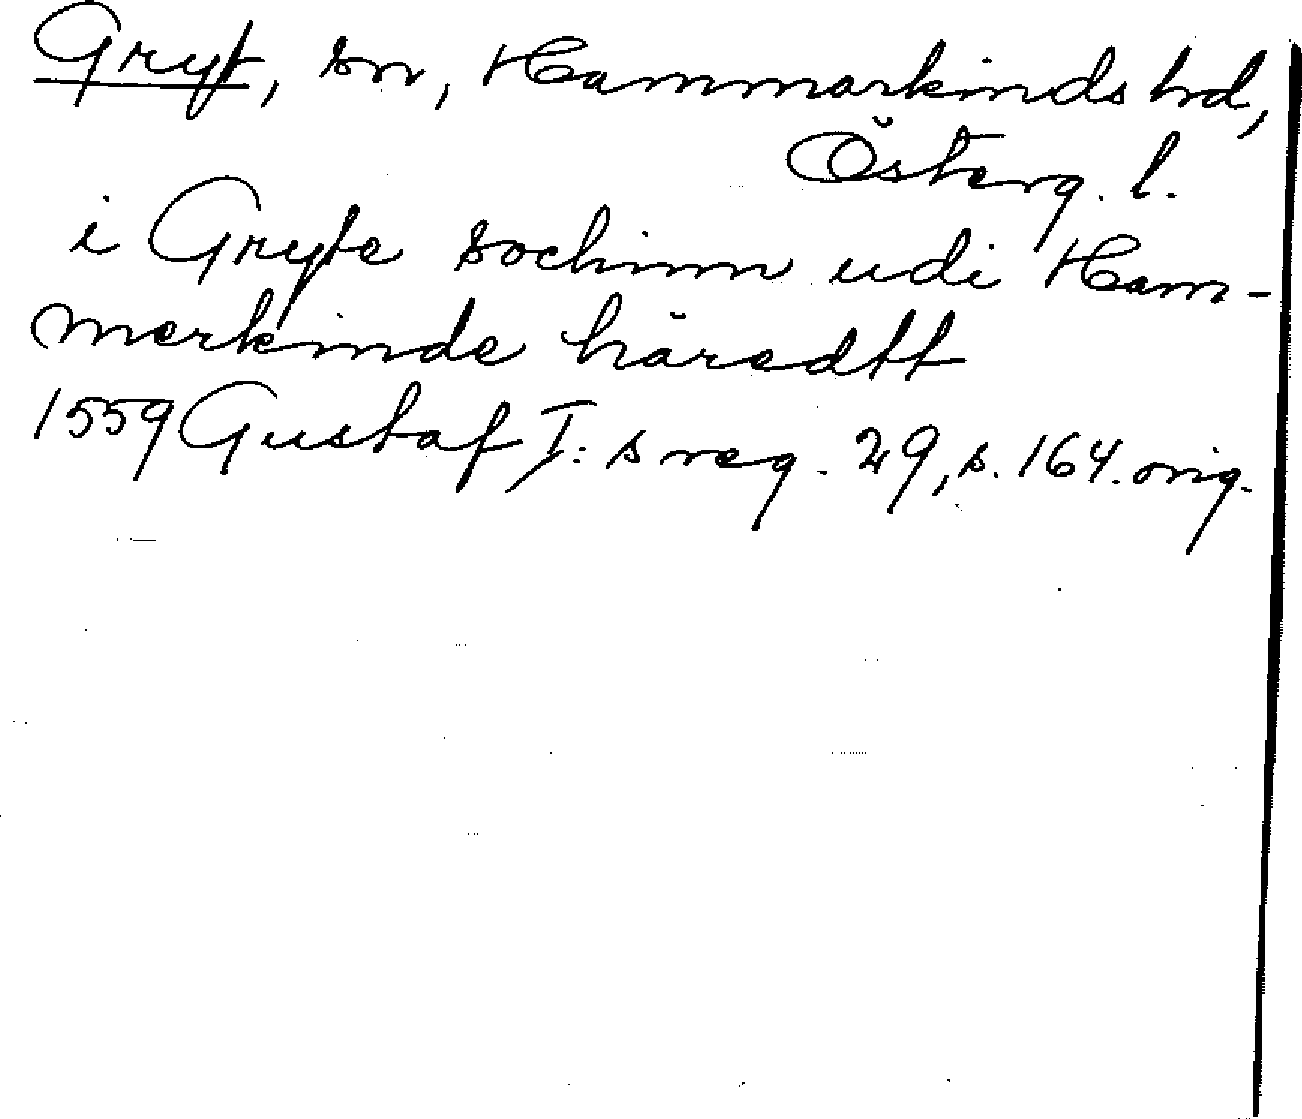 Gryt, sn, Hammarkinds hd,
Österg. l.
i Gryte sochinn udi Ham-
merkinde häredtt
1559 Gustaf I:s reg. 29, s. 164. orig.